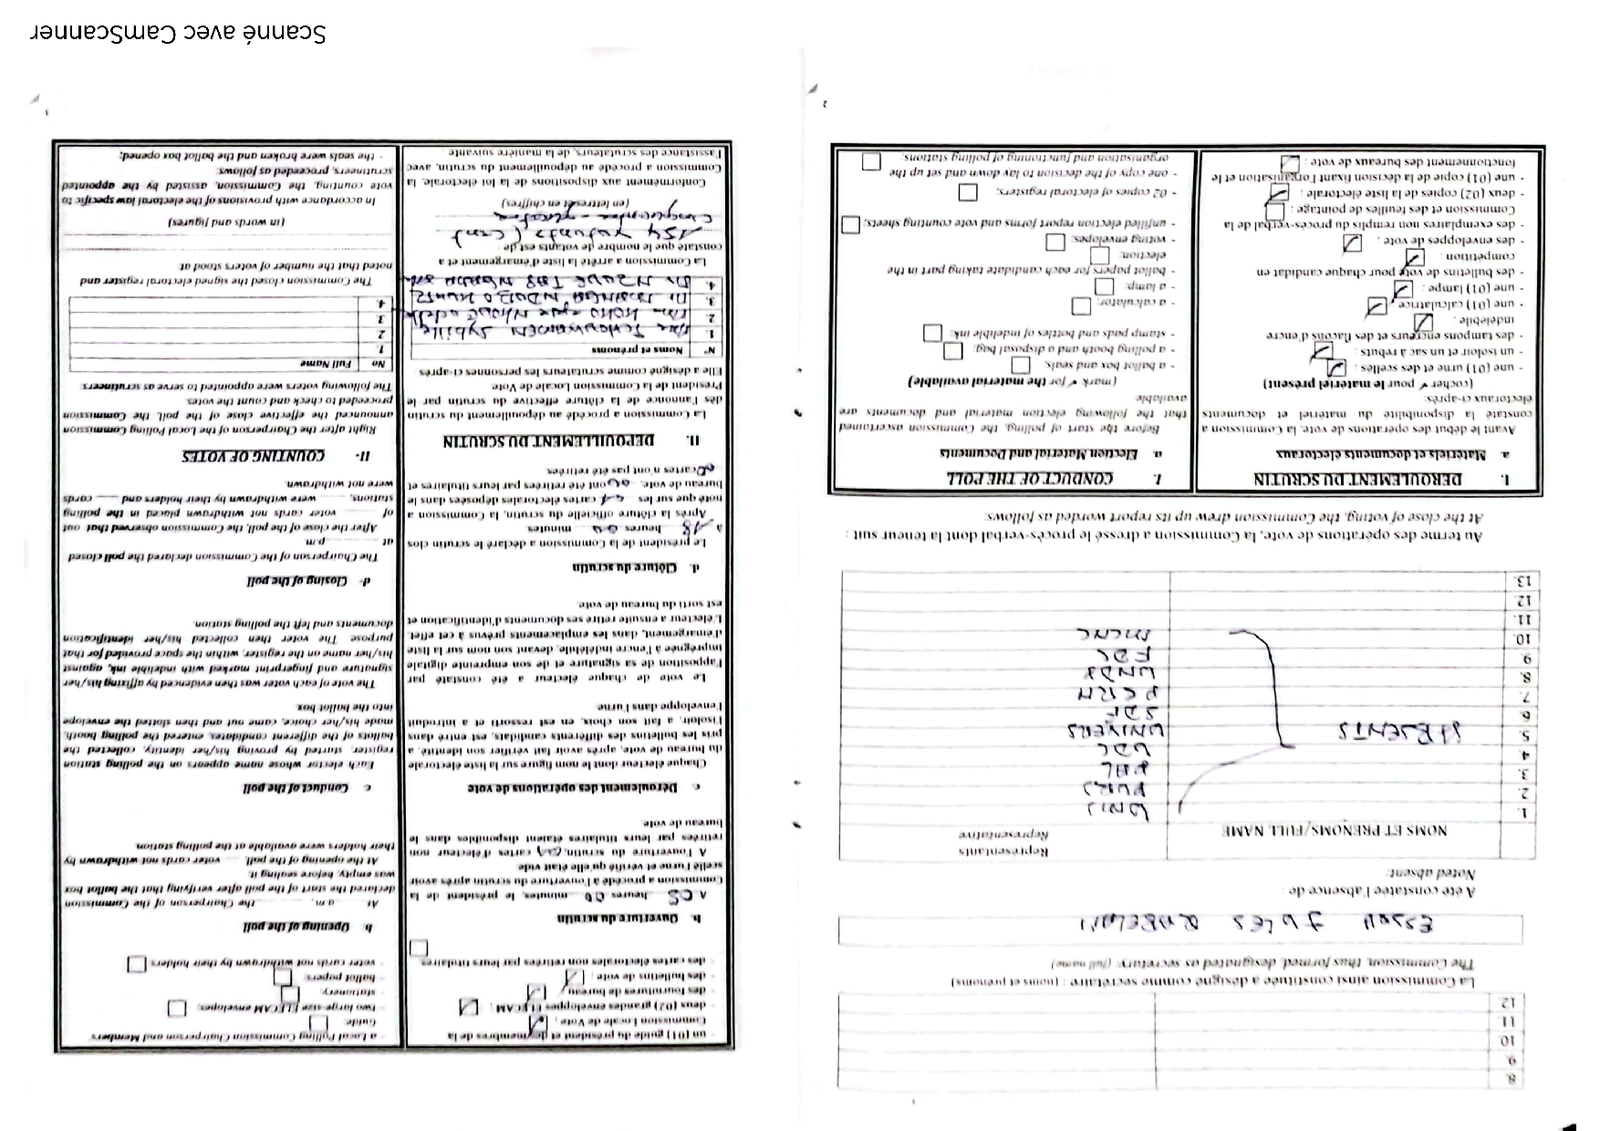 8.
9.
10
11
12
La Commission ainsi constituée a désigné comme secrétaire : (noms et prénoms)
The Commission, thus formed, designated as secretary: (full name)
ESSAH JULES
A été constatée l'absence de :
Noted absent:
NOMS ET PRENOMS/FULL NAME
Représentants
Representative
1. UNIJ
2. PURS
3. PAL
4 UDC
5. ABSENTS UNIVERS
6. SDF
7. PCRN
8. UNDP
9 FDC
10. MCNC
11.
12
13.
Au terme des opérations de vote, la Commission a dressé le procès-verbal dont la teneur suit :
At the close of voting, the Commission drew up its report worded as follows:
I. DEROULEMENT DU SCRUTIN
a. Matériels et documents électoraux
Avant le début des opérations de vote, la Commission a
constaté la disponibilité du matériel et documents
électoraux ci-après:
(cocher ✓ pour le matériel présent)
- une (01) urne et des scellés :
- un isoloir et un sac à rebuts :
- des tampons encreurs et des flacons d'encre
indélébile :
- une (01) calculatrice
- une (01) lampe :
- des bulletins de vote pour chaque candidat en
compétition :
- des enveloppes de vote :
- des exemplaires non remplis du procès-verbal de la
Commission et des feuilles de pointage :
- deux (02) copies de la liste électorale :
- une (01) copie de la décision fixant l'organisation et le
fonctionnement des bureaux de vote :
I. CONDUCT OF THE POLL
a. Election Material and Documents
Before the start of polling, the Commission ascertained
that the following election material and documents are
available:
(mark ✓ for the material available)
- a ballot box and seals;
- a polling booth and a disposal bag;
- stamp pads and bottles of indelible ink;
- a calculator;
- a lamp;
- ballot papers for each candidate taking part in the
election;
- voting envelopes;
- unfilled election report forms and vote counting sheets;
- 02 copies of electoral registers;
- one copy of the decision to lay down and set up the
organisation and functioning of polling stations;
2
- un (01) guide du président et des membres de la
Commission Locale de Vote ;
- deux (02) grandes enveloppes ELECAM ;
- des fournitures de bureau
- des bulletins de vote ;
- des cartes électorales non retirées par leurs titulaires
b. Ouverture du scrutin
A 08 heures 00 minutes, le président de la
Commission a procédé à l'ouverture du scrutin après avoir
scellé l'urne et vérifié qu'elle était vide
A l'ouverture du scrutin, cartes d'électeur non
retirées par leurs titulaires étaient disponibles dans le
bureau de vote
c. Déroulement des opérations de vote
Chaque électeur dont le nom figure sur la liste électorale
du bureau de vote, après avoir fait vérifier son identité, a
pris les bulletins des différents candidats, est entré dans
l'isoloir, a fait son choix, en est ressorti et a introduit
l'enveloppe dans l'urne
Le vote de chaque électeur a été constaté par
l'apposition de sa signature et de son empreinte digitale
imprégnée à l'encre indélébile, devant son nom sur la liste
d'émargement, dans les emplacements prévus à cet effet.
L'électeur a ensuite retiré ses documents d'identification et
est sorti du bureau de vote
d. Clôture du scrutin
Le président de la Commission a déclaré le scrutin clos
à 18 heures 00 minutes
Après la clôture officielle du scrutin, la Commission a
noté que sur les cartes électorales déposées dans le
bureau de vote, ont été retirées par leurs titulaires et
cartes n'ont pas été retirées
II. DEPOUILLEMENT DU SCRUTIN
La Commission a procédé au dépouillement du scrutin
dès l'annonce de la clôture effective du scrutin par le
Président de la Commission Locale de Vote
Elle a désigné comme scrutateurs les personnes ci-après :
N° Noms et prénoms
1.
2.
3.
4.
La Commission a arrêté la liste d'émargement et a
constaté que le nombre de votants est de
154 votants (cent
cinquante-quatre
(en lettres et en chiffres)
Conformément aux dispositions de la loi électorale, la
Commission a procédé au dépouillement du scrutin, avec
l'assistance des scrutateurs, de la manière suivante
- a Local Polling Commission Chairperson and Members
Guide
- two large-size ELECAM envelopes;
- stationery;
- ballot papers;
- voter cards not withdrawn by their holders
b. Opening of the poll
At a.m. the Chairperson of the Commission
declared the start of the poll after verifying that the ballot box
was empty, before sealing it.
At the opening of the poll, voter cards not withdrawn by
their holders were available at the polling station.
c. Conduct of the poll
Each elector whose name appears on the polling station
register, started by proving his/her identity, collected the
ballots of the different candidates, entered the polling booth,
made his/her choice, came out and then slotted the envelope
into the ballot box.
The vote of each voter was then evidenced by affixing his/her
signature and fingerprint marked with indelible ink, against
his/her name on the register, within the space provided for that
purpose. The voter then collected his/her identification
documents and left the polling station.
d- Closing of the poll
The Chairperson of the Commission declared the poll closed
at p.m
After the close of the poll, the Commission observed that out
of voter cards not withdrawn placed in the polling
stations, were withdrawn by their holders and cards
were not withdrawn.
II- COUNTING OF VOTES
Right after the Chairperson of the Local Polling Commission
announced the effective close of the poll, the Commission
proceeded to check and count the votes.
The following voters were appointed to serve as scrutineers:
No Full Name
1.
2
3
4
The Commission closed the signed electoral register and
noted that the number of voters stood at
(in words and figures)
In accordance with provisions of the electoral law specific to
vote counting, the Commission, assisted by the appointed
scrutineers, proceeded as follows:
- the seals were broken and the ballot box opened;
3
Scanné avec CamScanner